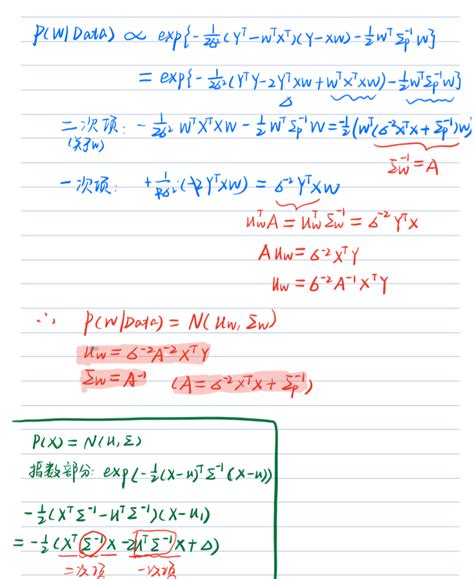 P(W|Data) ∝ exp{-1/2σ² (Yᵀ-WᵀXᵀ)(Y-XW) - 1/2 Wᵀ Σp⁻¹ W}
= exp{-1/2σ² (YᵀY-2YᵀXW+WᵀXᵀXW) - 1/2 WᵀΣp⁻¹W}
△
二次项: -1/2σ² WᵀXᵀXW - 1/2 WᵀΣp⁻¹W = -1/2(Wᵀ(σ⁻²XᵀX+Σp⁻¹)W)
(关于W)
Σw⁻¹ = A
一次项: +1/2σ² (+2YᵀXW) = σ⁻²YᵀXW
uwᵀA = uwᵀΣw⁻¹ = σ⁻²YᵀX
Auw = σ⁻²XᵀY
uw = σ⁻²A⁻¹XᵀY
∴ P(W|Data) = N(uw, Σw)
uw = σ⁻²A⁻²XᵀY
Σw = A⁻¹ (A = σ⁻²XᵀX + Σp⁻¹)
P(X) = N(u, Σ)
指数部分: exp(-1/2(X-u)ᵀΣ⁻¹(X-u))
-1/2(XᵀΣ⁻¹-uᵀΣ⁻¹)(X-u₁)
= -1/2(XᵀΣ⁻¹X-2uᵀΣ⁻¹X+△)
二次项 一次项